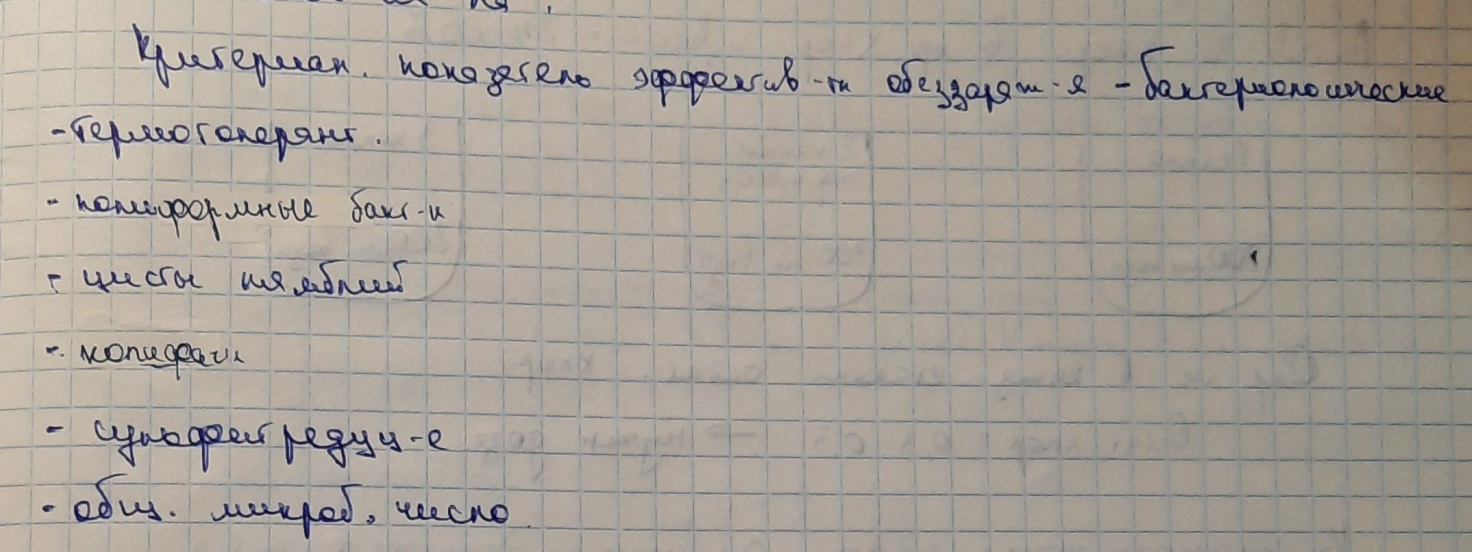 Критериал. показатель эффектив-ти обеззараж-я - бактериологические
- термотолерант.
- колиформные бакт-и
- цисты лямблий
- колифаги
- сульфитредуц-е
- общ. микроб. число